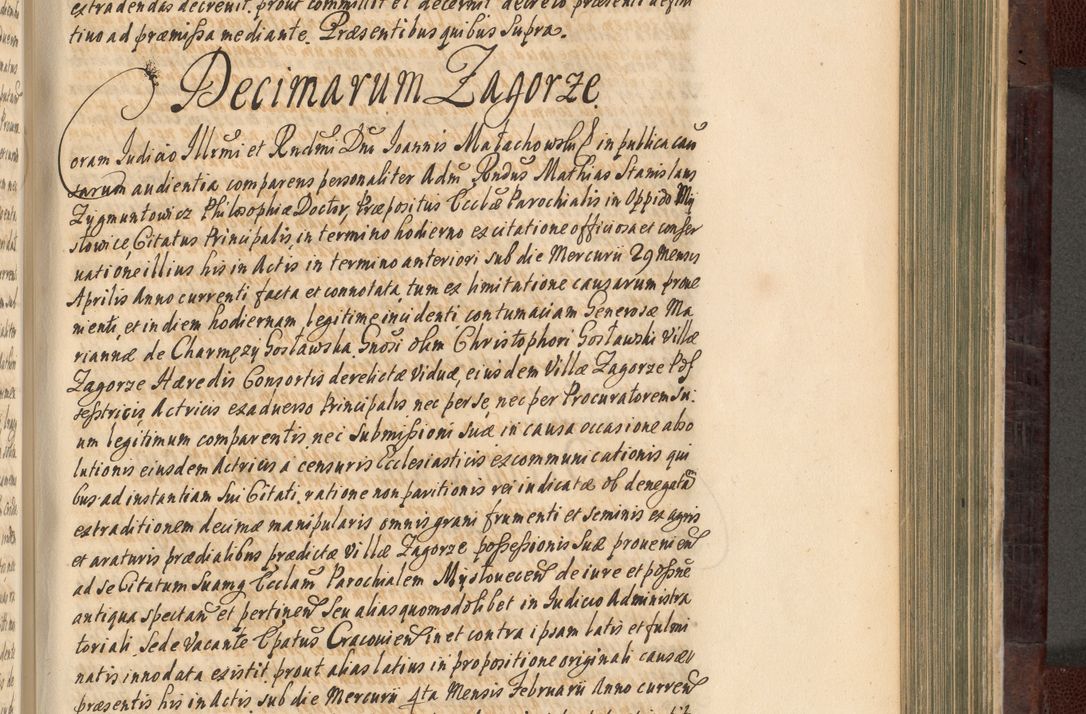 extradendas decreuit, prout committit et decernit decreto præsenti defini
tiuo ad præmissa mediante. Præsentibus quibus supra.
Decimarum Zagorze
Coram Judicio Illrmi et Rndmi Dni Joannis Małachowski in publica cau
sarum audientia comparens personaliter Adm Rndus Mathias Stanislaus
Zygmuntowicz Philosophiæ Doctor, Præpositus Ecclæ Parochialis in Oppido My
slowice, Citatus Principalis, in termino hodierno ex citatione officiosa et conser
uatione illius his in Actis in termino anteriori sub die Mercurii 29 Mensis
Aprilis Anno currenti facta et connotata, tum ex limitatione causarum proue
nienti, et in diem hodiernam legitime incidenti, contumaciam Generosæ Ma
riannæ de Charmęzy Gosławska Gnosi olim Christophori Gosławski Villæ
Zagorze Hæredis Consortis derelictæ Viduæ, eiusdem Villæ Zagorze Pos
sestricis, Actricis ex aduerso Principalis nec per se, nec per Procuratorem su:
um legitimum comparentis nec submissioni suæ in causa occasione abso
lutionis eiusdem Actricis a censuris Ecclesiasticis excommunicationis qui
bus ad instantiam sui Citati, ratione non paritionis rei iudicatæ ob denegatā
extraditionem decimæ manipularis omnis grani frumenti et seminis ex agris
et araturis prædialibus prædictæ Villæ Zagorze possessionis suæ prouenien
ad se Citatum suamq Ecclam Parochialem Myslouecen de iure et possne
antiqua spectan et pertinen seu alias quomodolibet in Judicio Administra
toriali, Sede Vacante Epatus Cracouien in et contra ipsam latis et fulmi
natis innodata existit, prout alias latius in propositione originali causæ
præsentis his in Actis sub die Mercurii 4ta Mensis Februarii Anno curren